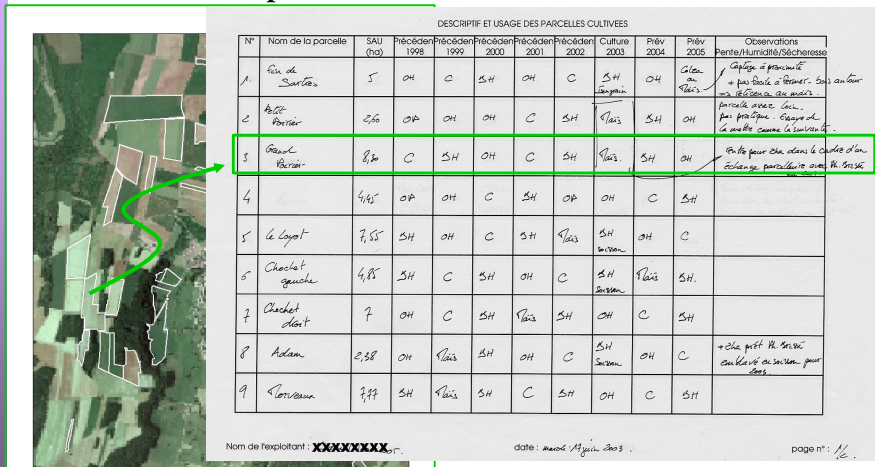 DESCRIPTIF ET USAGE DES PARCELLES CULTIVEES
N° Nom de la parcelle SAU (ha) Précéden 1998 Précéden 1999 Précéden 2000 Précéden 2001 Précéden 2002 Culture 2003 Prév 2004 Prév 2005 Observations Pente/Humidité/Sécheresse
1 Fin de Sarties 5 OH C BH OH C BH OH Colza ou Maïs Captage à proximité
+ pas facile à fermer. bois autour
=> réticence au maïs.
2 Petit Poirier 2,60 OP OH OH C BH Maïs BH OH parcelle assez loin.
pas pratique. Essaye de
la mettre comme la suivante.
3 Grand Poirier 8,30 C BH OH C BH Maïs. BH OH dans le cadre d'un
échange parcellaire avec
4 4,45 OP OH C BH OP OH C BH
5 Le Loyot 7,55 BH OH C BH Maïs BH Soisson OH C
6 Chochet gauche 4,85 C BH OH C BH Soisson Maïs BH.
7 Chochet droit 7 OH C BH Maïs BH OH C BH
8 Adam 2,38 OH Maïs BH OH C BH Soisson OH C + 2ha prêt
emblavé en soisson pour
2003.
9 Morveaux 7,77 BH Maïs BH C BH OH C BH
Nom de l'exploitant : XXXXXXXX date : mardi 17 juin 2003. page n° : 1/2